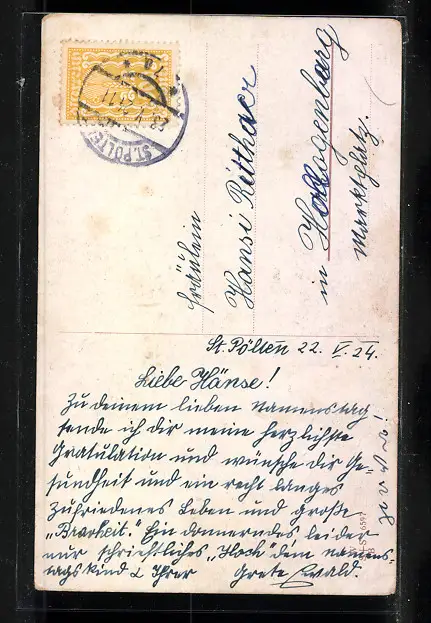 ST. PÖLTEN
Fräulein
Hansi Ritthaer
in Herzogenburg
Marktplatz.
St. Pölten 22. V. 24.
Liebe Hänse!
Zu deinem lieben Namenstag
sende ich dir meine herzlichste
Gratulation und wünsche dir Ge-
sundheit und ein recht langes
zufriedenes Leben und große
„Bravheit." Ein donnerndes leider
nur schriftliches „Hoch" dem Namens-
tagskind
Ihrer Grete Ewald.